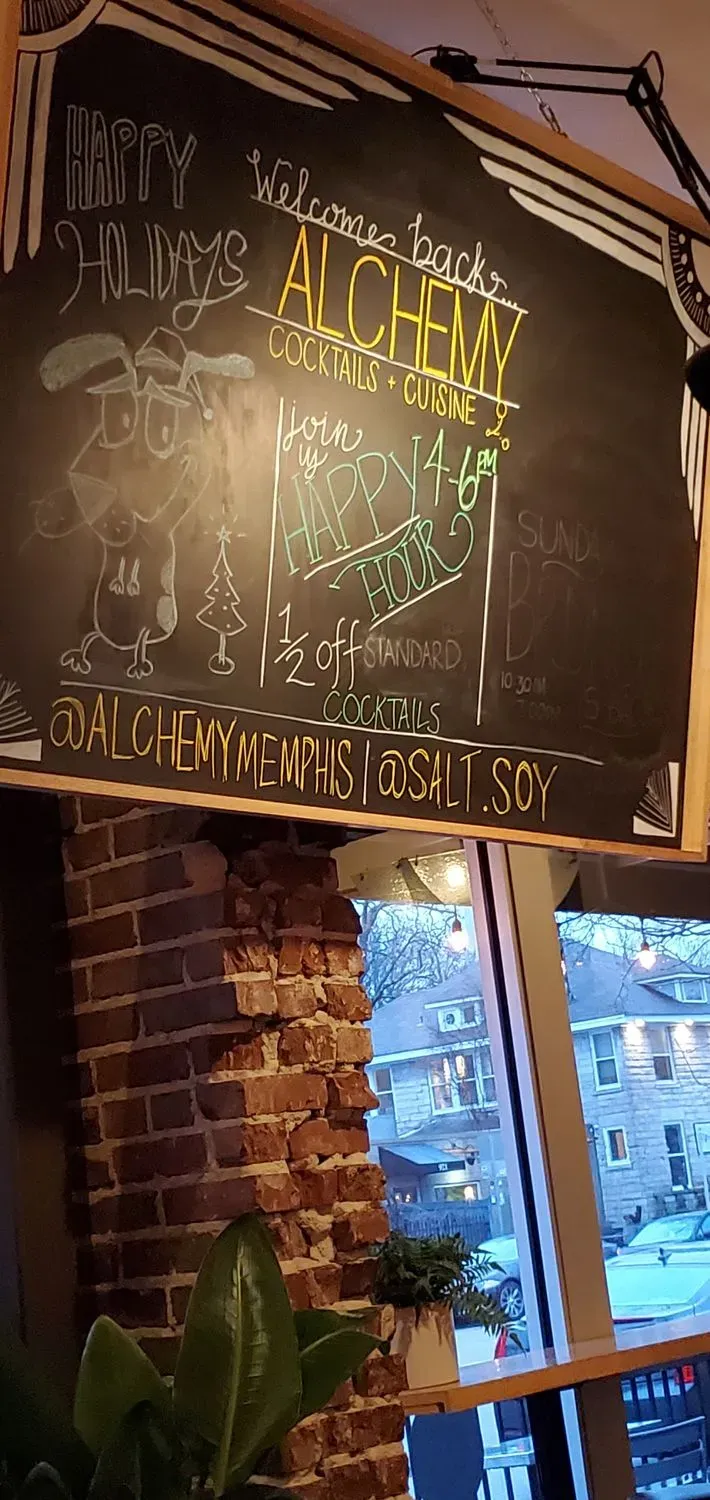 HAPPY
HOLIDAYS
Welcome back...
ALCHEMY
COCKTAILS + CUISINE
join
us
HAPPY 4-6PM
HOUR
1/2 off STANDARD
COCKTAILS
10:30AM
@ALCHEMYMEMPHIS | @SALT.SOY